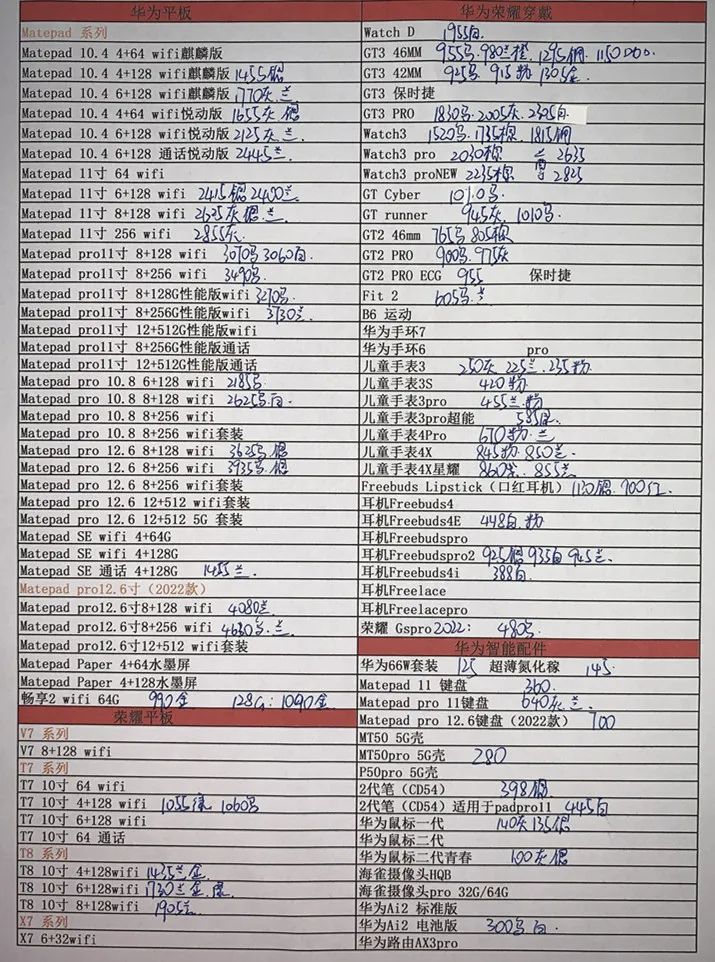 华为平板
Matepad 系列
Matepad 10.4 4+64 wifi麒麟版
Matepad 10.4 4+128 wifi麒麟版 1455银
Matepad 10.4 6+128 wifi麒麟版 1770灰.兰
Matepad 10.4 4+64 wifi悦动版 1655灰 银
Matepad 10.4 6+128 wifi悦动版 2125灰.兰.
Matepad 10.4 6+128 通话悦动版 2445兰.
Matepad 11寸 64 wifi
Matepad 11寸 6+128 wifi 2415银 2400兰.
Matepad 11寸 8+128 wifi 2625灰 银.兰
Matepad 11寸 256 wifi 2855灰.
Matepad pro11寸 8+128 wifi 3070乌 3060白.
Matepad pro11寸 8+256 wifi 3490乌.
Matepad pro11寸 8+128G性能版wifi 3270乌.
Matepad pro11寸 8+256G性能版wifi 3730兰.
Matepad pro11寸 12+512G性能版wifi
Matepad pro11寸 8+256G性能版通话
Matepad pro11寸 12+512G性能版通话
Matepad pro 10.8 6+128 wifi 2185乌
Matepad pro 10.8 8+128 wifi 2625乌.白.
Matepad pro 10.8 8+256 wifi
Matepad pro 10.8 8+256 wifi套装
Matepad pro 12.6 8+128 wifi 3625乌.银
Matepad pro 12.6 8+256 wifi 3935乌.银
Matepad pro 12.6 8+256 wifi套装
Matepad pro 12.6 12+512 wifi套装
Matepad pro 12.6 12+512 5G 套装
Matepad SE wifi 4+64G
Matepad SE wifi 4+128G
Matepad SE 通话 4+128G 1455兰.
Matepad pro12.6寸（2022款）
Matepad pro12.6寸8+128 wifi 4080兰
Matepad pro12.6寸8+256 wifi 4630乌.兰
Matepad pro12.6寸12+512 wifi套装
Matepad Paper 4+64水墨屏
Matepad Paper 4+128水墨屏
畅享2 wifi 64G 990金 128G: 1090金.
荣耀平板
V7 系列
V7 8+128 wifi
T7 系列
T7 10寸 64 wifi
T7 10寸 4+128 wifi 1055 1060乌
T7 10寸 6+128 wifi
T7 10寸 64 通话
T8 系列
T8 10寸 4+128wifi 1435兰金.
T8 10寸 6+128wifi 1730兰金.
T8 10寸 8+128wifi 1905兰.
X7 系列
X7 6+32wifi
华为荣耀穿戴
Watch D 1955白.
GT3 46MM 955乌 980兰橙 1295钢. 1150
GT3 42MM 925乌. 915粉 1305金.
GT3 保时捷
GT3 PRO 1830乌 2005灰 2305白.
Watch3 1520乌 1735棕 1815钢
Watch3 pro 2030棕 2635
Watch3 proNEW 2235棕 2825
GT Cyber 1010乌.
GT runner 945灰, 1010乌.
GT2 46mm 765乌 805棕
GT2 PRO 900乌 975灰
GT2 PRO ECG 955 保时捷
Fit 2 605乌.兰
B6 运动
华为手环7
华为手环6 pro
儿童手表3 250灰 225兰.235粉.
儿童手表3S 420粉
儿童手表3pro 455兰.粉.
儿童手表3pro超能 585
儿童手表4Pro 670粉.兰.
儿童手表4X 845粉.850兰.
儿童手表4X星耀 860 855兰
Freebuds Lipstick（口红耳机）1130银. 900红.
耳机Freebuds4
耳机Freebuds4E 448白.粉
耳机Freebudspro
耳机Freebudspro2 925银 935白 945兰.
耳机Freebuds4i 388白.
耳机Freelace
耳机Freelacepro
荣耀 Gspro2022: 480乌.
华为智能配件
华为66W套装 125 超薄氮化稼 145.
Matepad 11 键盘 360.
Matepad pro 11键盘 640灰兰.
Matepad pro 12.6键盘（2022款） 700
MT50 5G壳
MT50pro 5G壳 280
P50pro 5G壳
2代笔（CD54） 398银.
2代笔（CD54）适用于padpro11 445白
华为鼠标一代 140灰 135银
华为鼠标二代
华为鼠标二代青春 100灰银
海雀摄像头HQB
海雀摄像头pro 32G/64G
华为Ai2 标准版
华为Ai2 电池版 300乌 白.
华为路由AX3pro